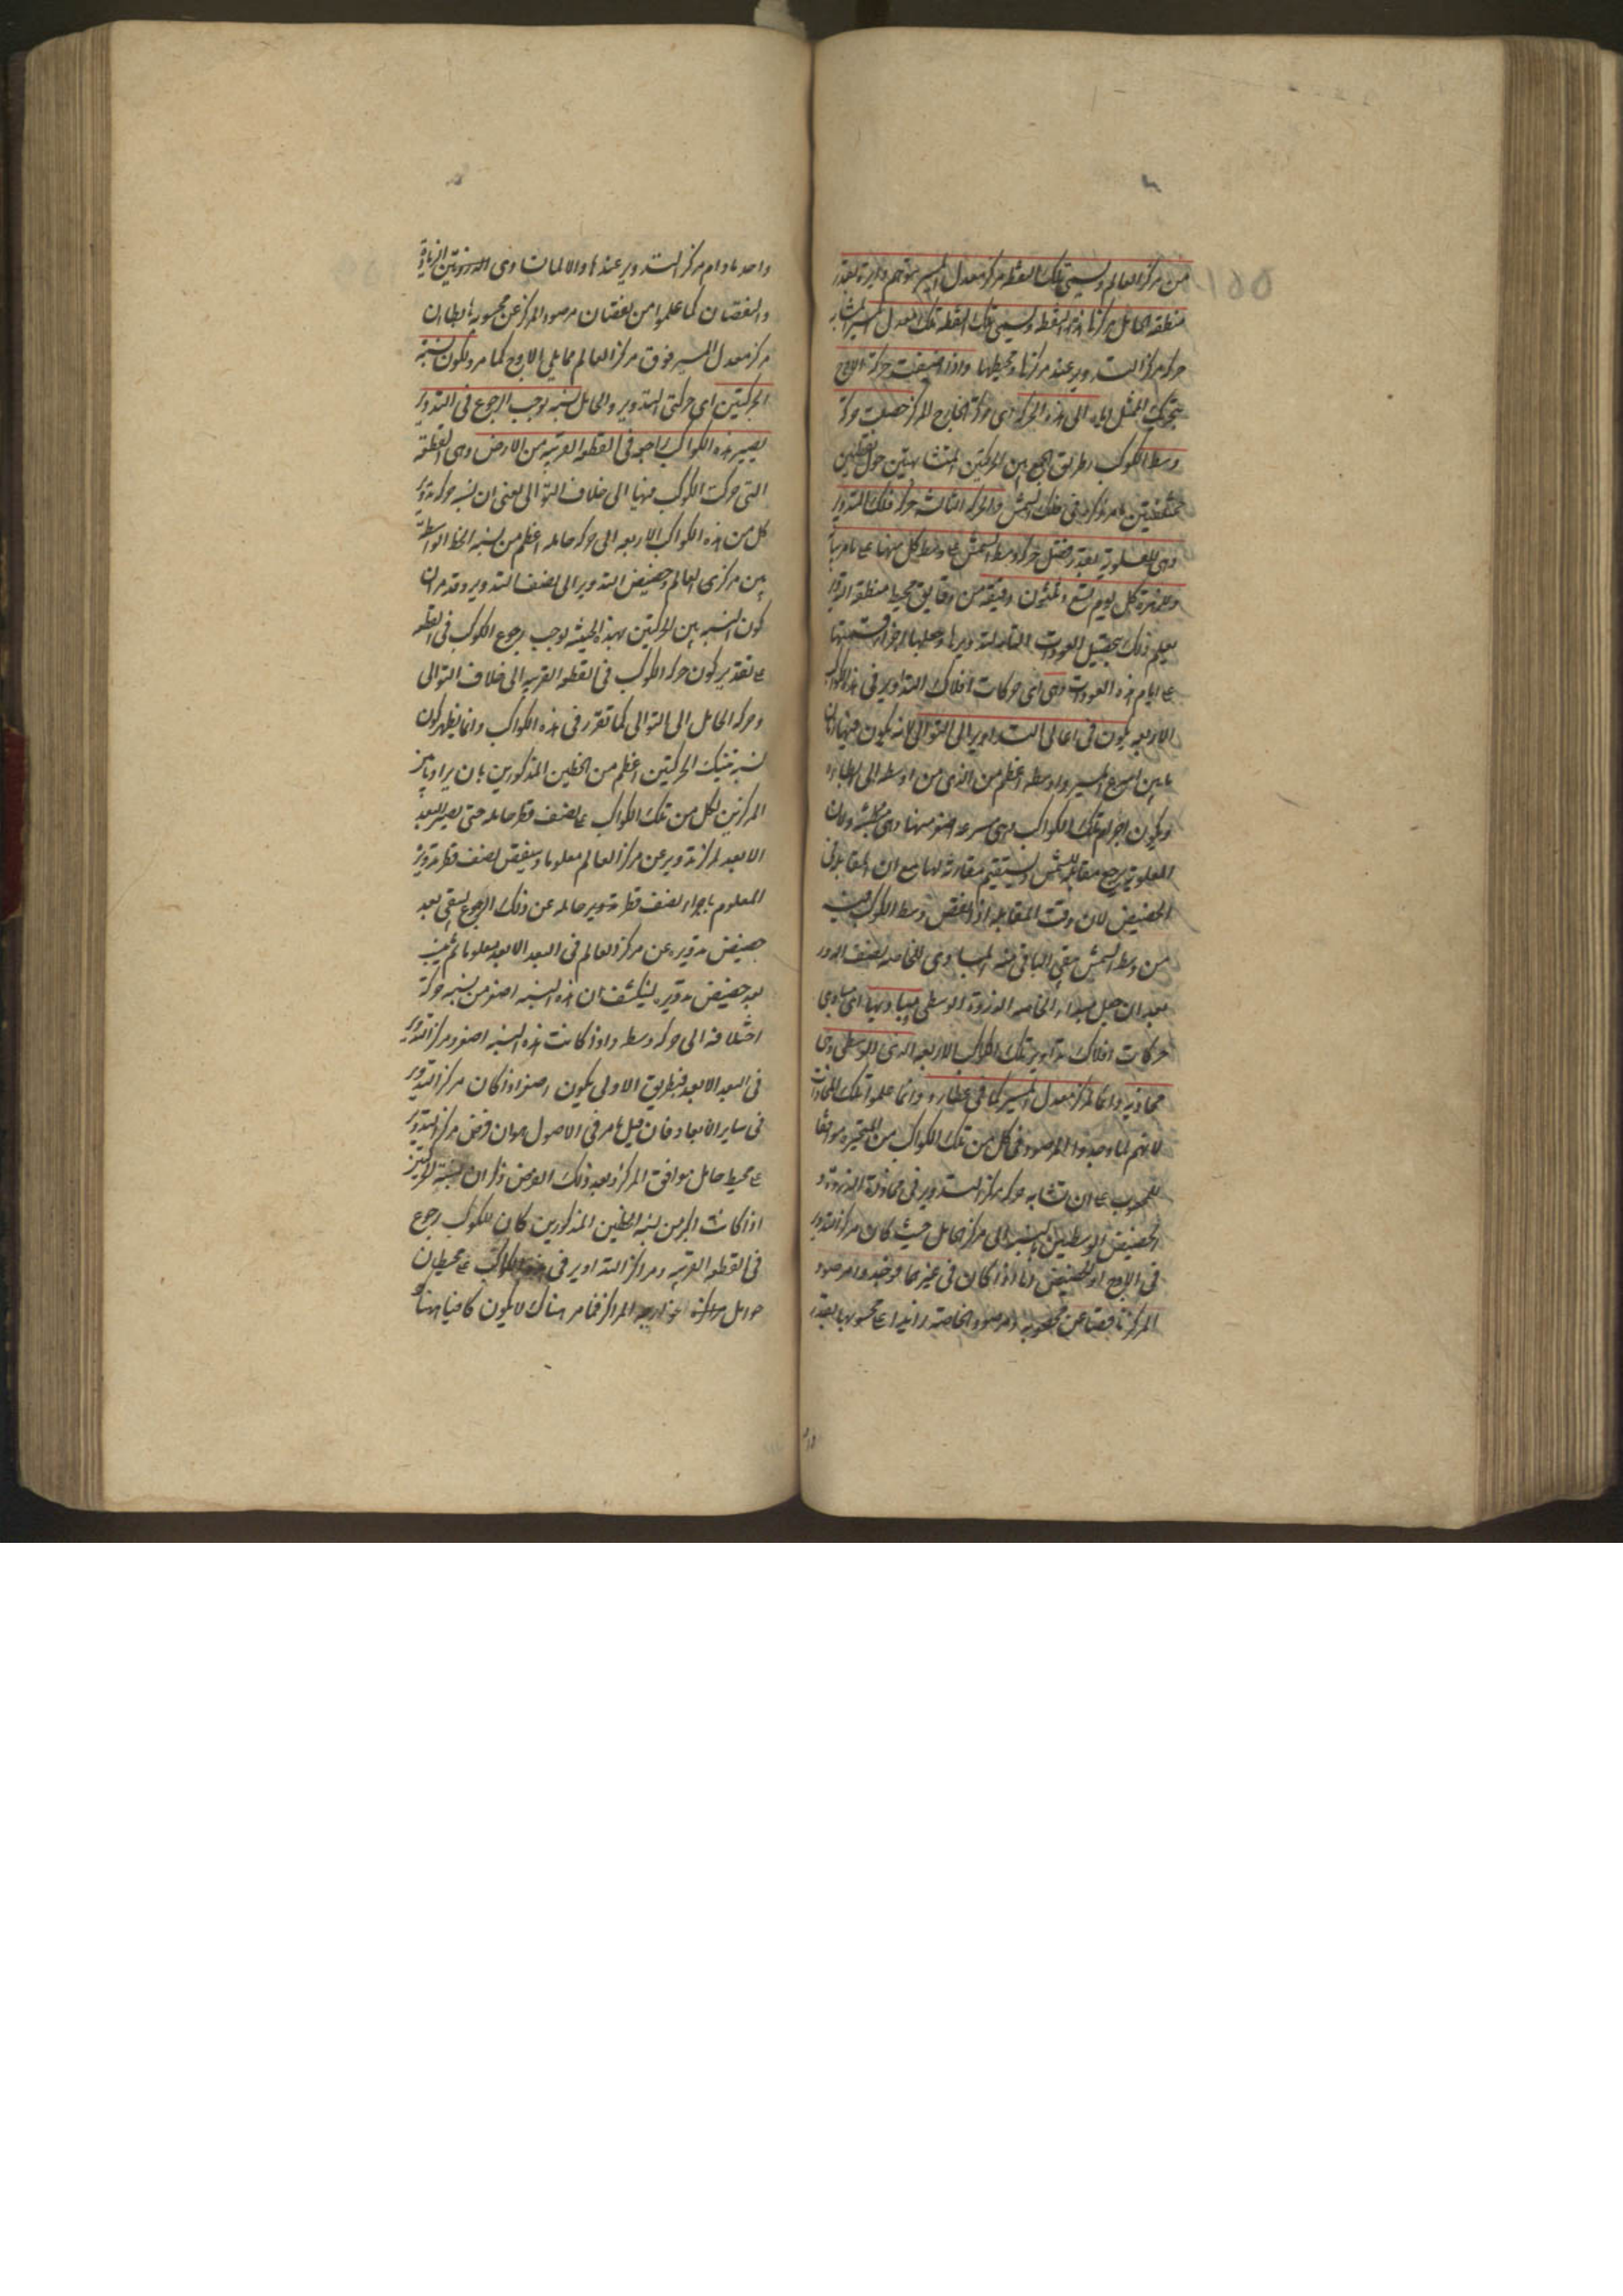 من مركز العالم وتسمى تلك النقطة مركز معدل المسير يتوهم دايرة بقدر
منطقة الحامل مركزها هذه النقطة وتسمى تلك النقطة فلك المعدل المسير
حركة مركز التدوير عند مركزها ومحيطها واذا اضيفت حركة الاوج
بتحريك الممثل اياه الى هذه الحركة اى حركة الخارج المركز حصلت حركة
وسط الكوكب بطريق الجمع بين الحركتين المتشابهتين حول نقطتين
مختلفتين كما مر ذكره فى فلك الشمس والحركة الثالثة حركة فلك التدوير
وهى للعلوية بقدر فضل حركة وسط الشمس على وسط كل منها على ما مر
وللزهرة كل يوم سبع وثلثون دقيقة من دقايق محيط منطقة التدوير
يعلم ذلك بتحصيل العودات التامة لتدويرها وجعلها اجزاء وقسمتها
على ايام هذه العودات وهى اى حركات افلاك التداوير فى هذه الكواكب
الاربعة يكون فى اعالى التداوير الى التوالى لانه يكون فيها زمان
ما بين اسرع المسير واوسطه اعظم من الذى من اوسطه الى ابطائه
ويكون اجرام تلك الكواكب وهى سريعة اصغر منها وهى بطيئة ولان
العلوية يرجع مقابلة للشمس ويستقيم مقارنة لها مع ان المقابلة فى
الحضيض لان وقت المقابلة اذا نقص وسط الكوكب
من وسط الشمس بقى الباقى منه المساوى للخاصة نصف الدور
بعد ان جعل مبداء الخاصة الذروة الوسطى ومباديها اى مبادى
حركات افلاك تداوير تلك الكواكب الاربعة الذرى الوسطى وهى
محاذية دائما لمركز معدل المسير كما فى عطارد وانما علموا تلك المحاذات
لانهم لما وجدوا المرصود فى كل من تلك الكواكب من المتحيرة موافقا
للمحسوب على ان تشابه حركة مركز التدوير فى محاذاة الذروة و
الحضيض الوسطيين بالنسبة الى مركز الحامل حيث كان مركز التدوير
فى الاوج او الحضيض واما اذا كان فى غيرهما فوجدوا مرصود
المركز ناقصا عن محسوبه ومرصود الخاصة زايدا على محسوبها بقدر
واحد ما دام مركز التدوير عندها والا لما تساوى الزيادة
والنقصان كما علموا من نقصان مرصود المركز عن محسوبه هابطا ان
مركز معدل المسير فوق مركز العالم مما يلى الاوج كما مر ولكون نسبة
الحركتين اى حركتى التدوير والحامل نسبة توجب الرجوع فى التدوير
يصير هذه الكواكب راجعة فى القطعة القريبة من الارض وهى القطعة
التى حركت الكوكب فيها الى خلاف التوالى يعنى ان نسبة حركة تدوير
كل من هذه الكواكب الاربعة الى حركة حامله اعظم من نسبة الخط الواسطة
بين مركزى العالم وحضيض التدوير الى نصف التدوير وقد مر ان
كون النسبة بين الحركتين بهذه الحيثية توجب رجوع الكوكب فى القطعة
على تقدير كون حركة الكوكب فى القطعة القريبة الى خلاف التوالى
وحركة الحامل الى التوالى كما تقرر فى هذه الكواكب وانما يظهر كون
نسبة تينك الحركتين اعظم من الخطين المذكورين بان يزاد ما بين
المركزين لكل من تلك الكواكب على نصف قطر حامله حتى يصير البعد
الابعد لمركز تدويره عن مركز العالم معلوما وينقص نصف قطر تدويره
المعلوم باجزاء نصف قطر تدوير حامله عن ذلك المجموع ليبقى بعد
حضيض تدويره عن مركز العالم فى البعد الابعد معلوما ثم ينسب
بعد حضيض تدويره لينكشف ان هذه النسبة اصغر من نسبة حركة
اختلافه الى حركة وسطه واذا كانت هذه النسبة اصغر ومركز التدوير
فى البعد الابعد فبطريق الاولى يكون اصغر اذا كان مركز التدوير
فى ساير الابعاد فان قيل ما مر فى الاصول هو ان فرض مركز التدوير
على محيط حامل موافق المركز وبعد ذلك الفرض ذكر ان نسبة الحركتين
اذا كانت اكبر من نسبة الخطين المذكورين كان للكوكب رجوع
فى القطعة القريبة ومراكز التداوير فى هذه الكواكب على محيطات
حوامل خارجة المراكز فما مر هناك لا يكون كافيا ههنا